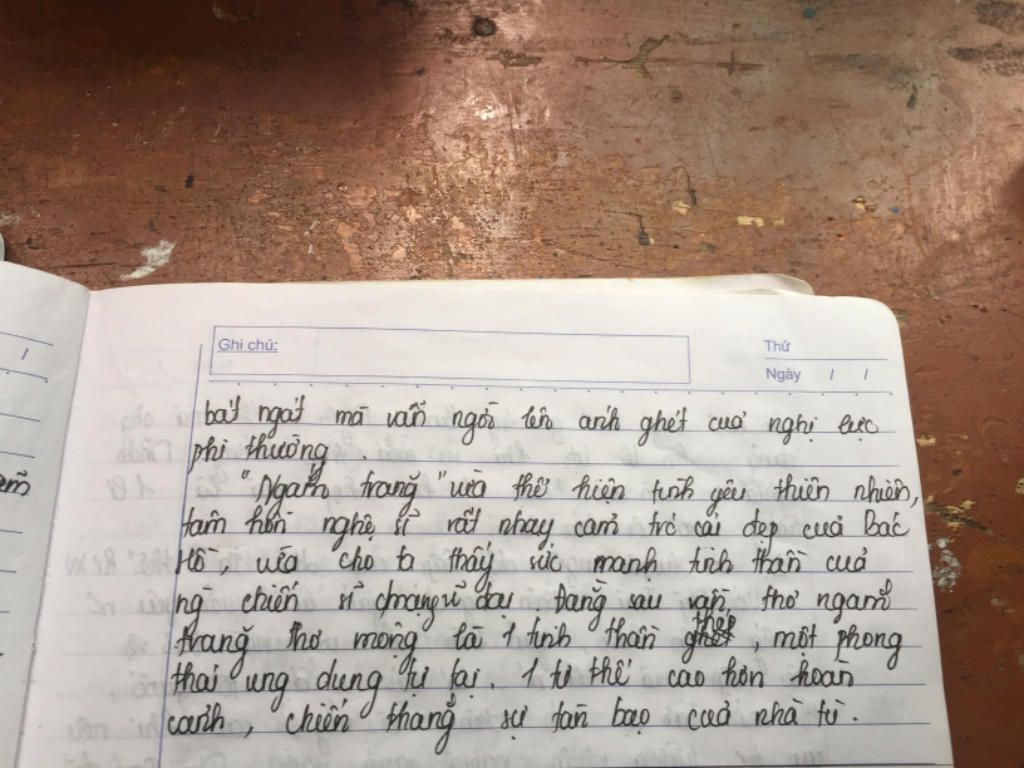 Ghi chú:
Thứ
Ngày / /
bát ngát mà vẫn ngời lên ánh ghét của nghị lực
phi thường.
"Ngắm trăng" vừa thể hiện tình yêu thiên nhiên,
tâm hồn nghệ sĩ rất nhạy cảm trc cái đẹp của Bác
Hồ, vừa cho ta thấy sức mạnh tinh thần của
ng chiến sĩ cmạng vĩ đại. Đằng sau vần thơ ngắm
trăng thơ mộng là 1 tinh thần thép, một phong
thái ung dung tự tại. 1 tư thế cao hơn hoàn
cảnh, chiến thắng sự tàn bạo của nhà tù.